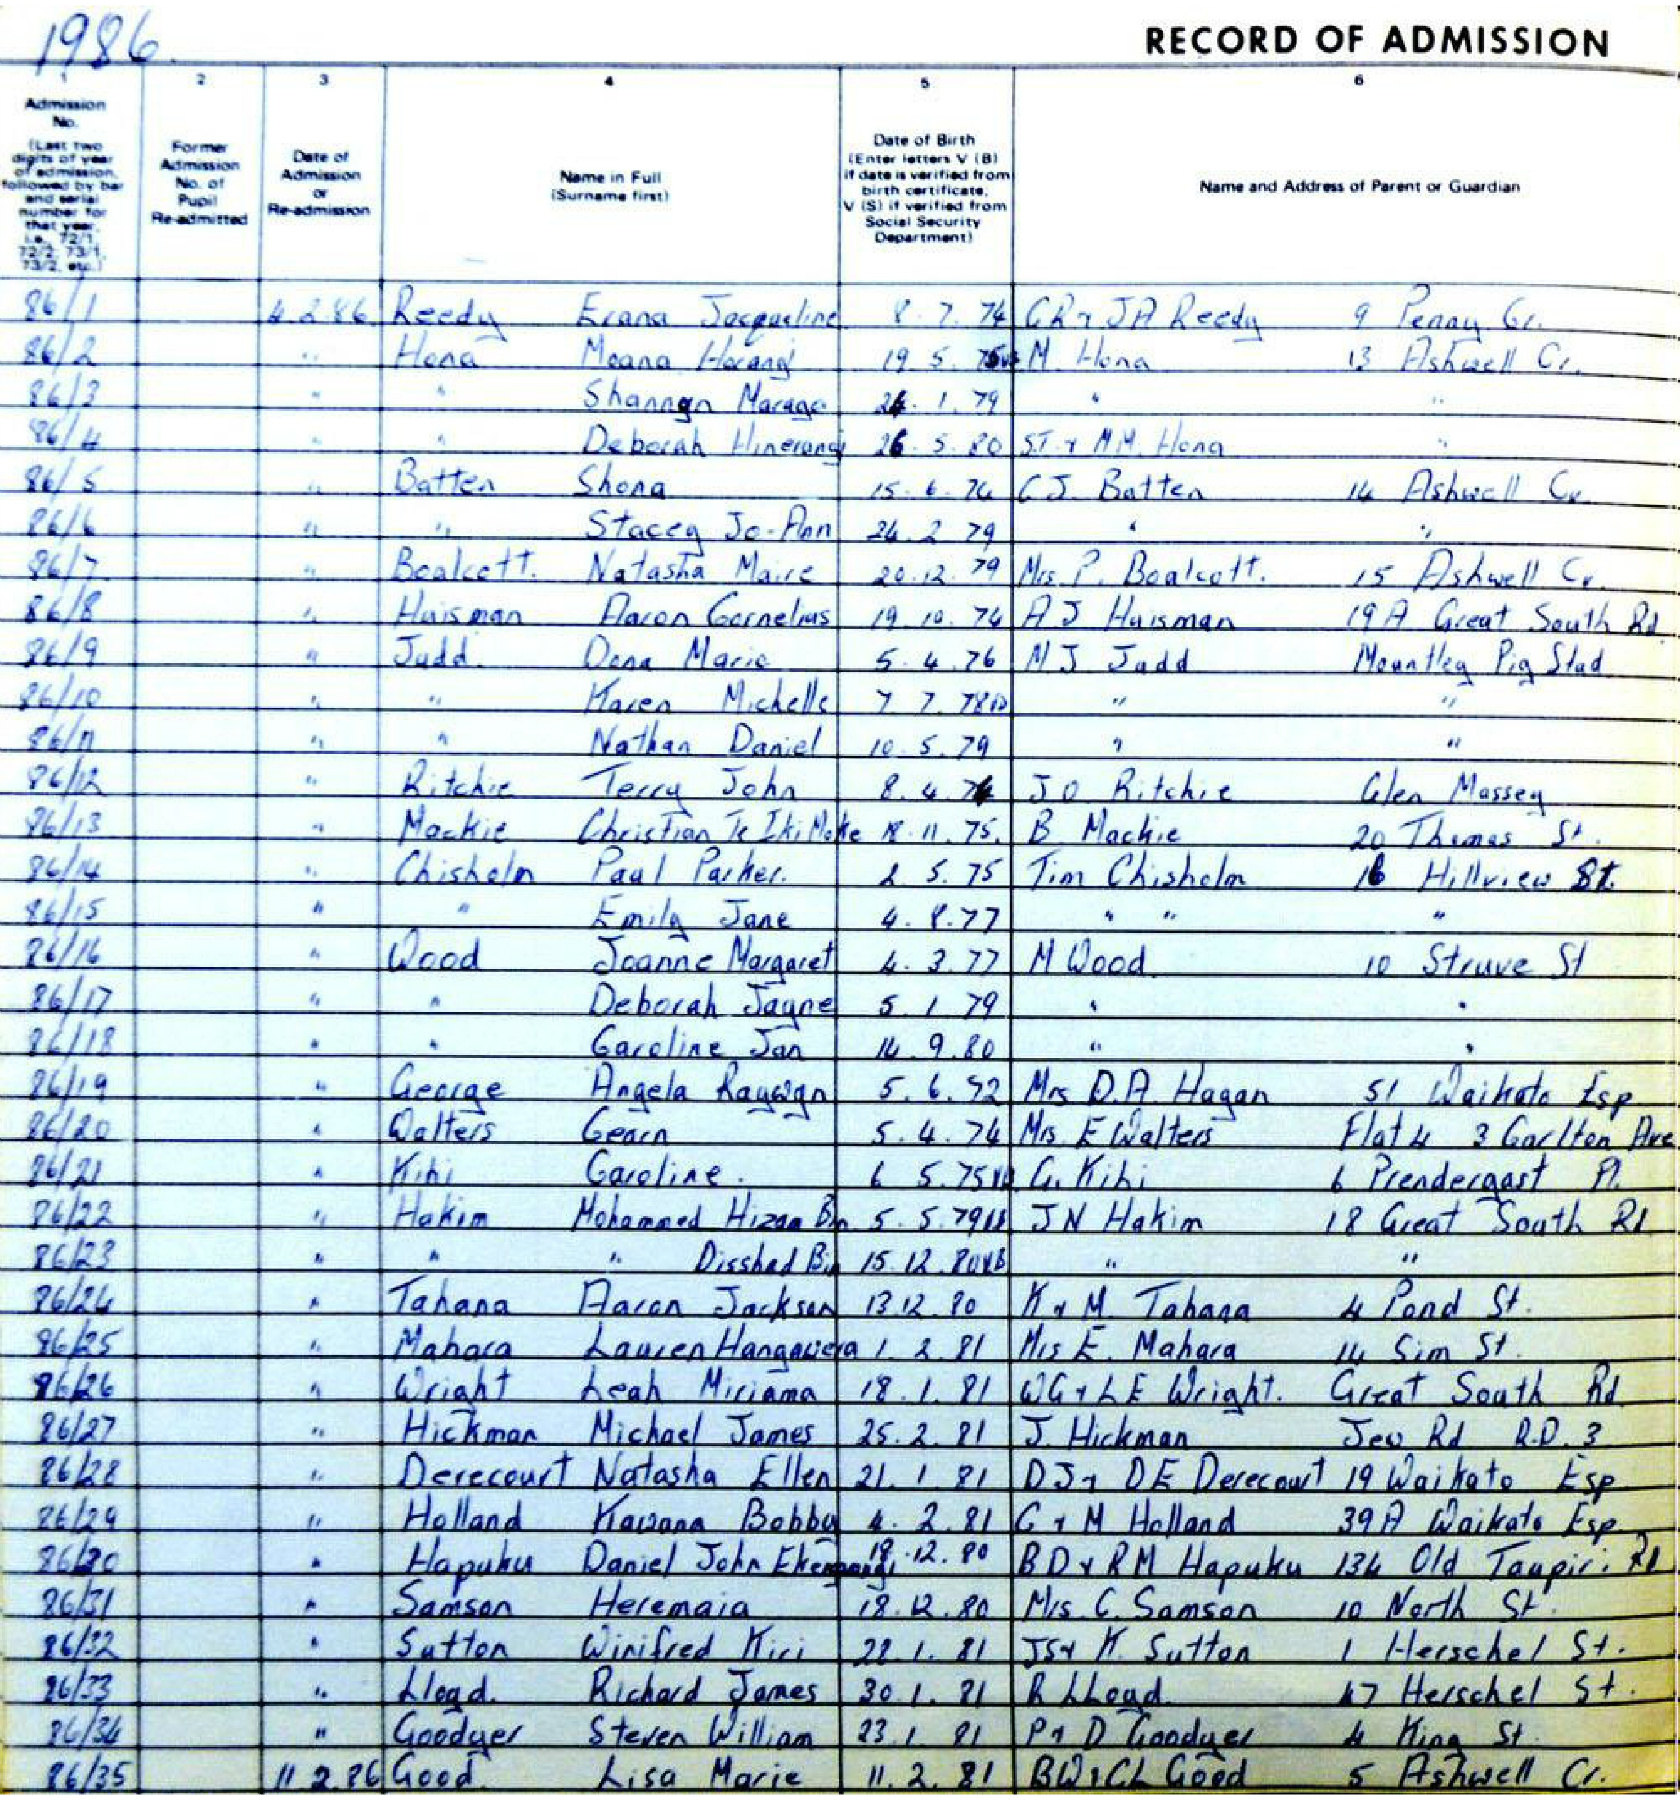 1986.
RECORD OF ADMISSION
1 2 3 4 5 6
Admission
No.
(Last two
digits of year
of admission,
followed by bar
and serial
number for
that year,
i.e., 72/1,
72/2, 73/1,
73/2, etc.)
Former
Admission
No. of
Pupil
Re-admitted
Date of
Admission
or
Re-admission
Name in Full
(Surname first)
Date of Birth
(Enter letters V (B)
if date is verified from
birth certificate,
V (S) if verified from
Social Security
Department)
Name and Address of Parent or Guardian
86/1 4.2.86 Reedy Erana Jacqueline 8.7.74 C R & J A Reedy 9 Penny Cr.
86/2 " Hona Moana Horangi 19.5. M. Hona 13 Ashwell Cr.
86/3 " " Shannon 24.1.79 " "
86/4 " " Deborah Hinerangi 26.5.80 S.T. & M M. Hona "
86/5 " Batten Shona 15.6.74 C J. Batten 14 Ashwell Cr.
86/6 " " Stacey Jo-Ann 24.2.79 " "
86/7 " Boalcott. Natasha Maire 20.12.79 Mrs. P. Boalcott. 15 Ashwell Cr.
86/8 " Huisman Aaron Cornelius 19.10.74 A J Huisman 19 A Great South Rd
86/9 " Judd. Dona Marie 5.4.76 M J Judd Mountley Pig Stud
86/10 " " Karen Michelle 7.7.78 " "
86/11 " " Nathan Daniel 10.5.79 " "
86/12 " Ritchie Terry John 8.4. J O Ritchie Glen Massey
86/13 " Mackie Christian Te Iki Moke 18.11.75. B Mackie 20 Thomas St.
86/14 " Chisholm Paul Parker. 2.5.75 Tim Chisholm 16 Hillview St.
86/15 " " Emily Jane 4.8.77 " " "
86/16 " Wood Joanne Margaret 4.3.77 M Wood. 10 Struve St
86/17 " " Deborah Jayne 5.1.79 " "
86/18 " " Caroline Jan 14.9.80 " "
86/19 " George Angela Raywyn 5.6.72 Mrs D.A. Hagan 51 Waikato Esp
86/20 " Walters Gearn 5.4.74 Mrs. E Walters Flat 4 3 Carlton Ave
86/21 " Kihi Caroline. 6 5.75 G. Kihi 6 Prendergast Pl.
86/22 " Hakim Mohammed Hizam Bin 5.5.79 J N Hakim 18 Great South Rd
86/23 " " " Disshad Bin 15.12.80 VB " "
86/24 " Tahana Aaron Jackson 13.12.80 K & M. Tahana 4 Pond St.
86/25 " Mahara Lauren Hangawera 1.2.81 Mrs E. Mahara 14 Sim St.
86/26 " Wright Leah Miriama 18.1.81 W G & L E Wright. Great South Rd
86/27 " Hickman Michael James 25.2.81 J. Hickman Jew Rd R.D. 3
86/28 " Derecourt Natasha Ellen 21.1.81 D J & D E Derecourt 19 Waikato Esp
86/29 " Holland Kawana Bobby 4.2.81 C & M Holland 39 A Waikato Esp.
86/30 " Hapuku Daniel John 18.12.80 B D & R M Hapuku 134 Old Taupiri Rd
86/31 " Samson Heremaia 18.12.80 Mrs. C. Samson 10 North St.
86/32 " Sutton Winifred Kiri 22.1.81 J S & K. Sutton 1 Herschel St.
86/33 " Lloyd. Richard James 30.1.81 R LLoyd. 47 Herschel St.
86/34 " Goodyer Steven William 23.1.81 P & D Goodyer 4 King St.
86/35 11.2.86 Good. Lisa Marie 11.2.81 B W & C L Good 5 Ashwell Cr.